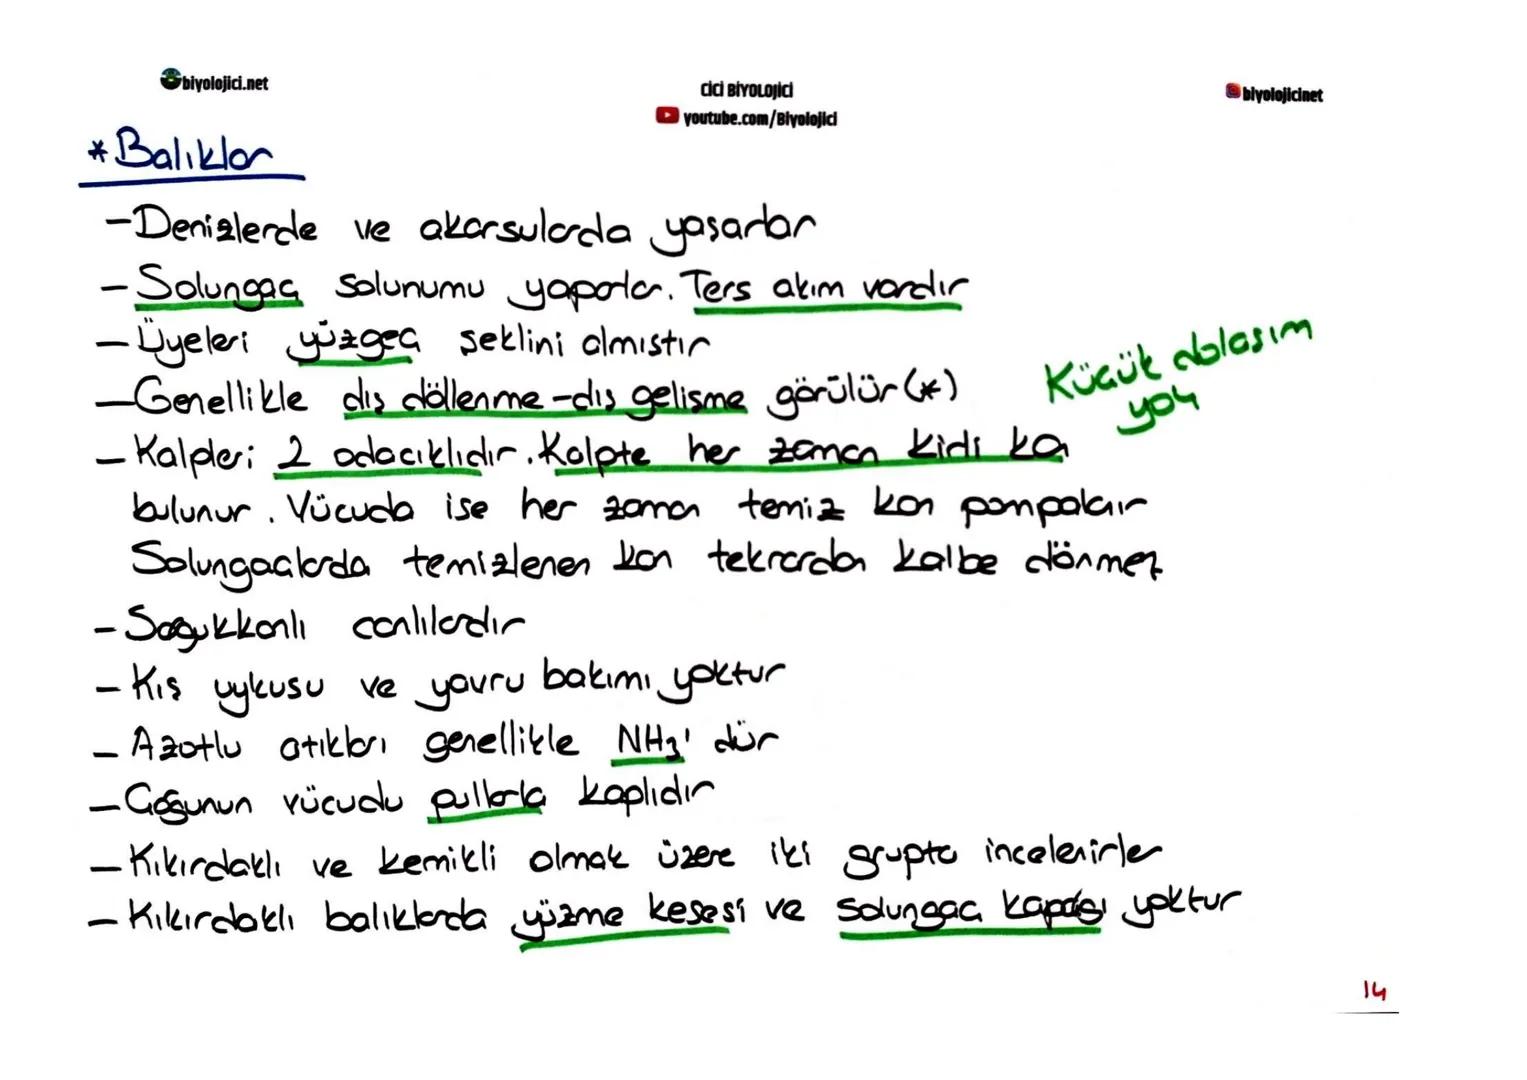 biyolojici.net
CİCİ BİYOLOJİCİ
youtube.com/Biyolojici
biyolojicinet
*Balıklar
-Denizlerde ve akarsularda yaşarlar
-Solungaç solunumu yaparlar. Ters akım vardır
-Üyeleri yüzgeç şeklini almıştır
-Genellikle dış döllenme-dış gelişme görülür(*)
Küçük dolaşım
yok
-Kalpleri 2 odacıklıdır. Kalpte her zaman kirli kan
bulunur. Vücuda ise her zaman temiz kan pompalanır
Solungaçlarda temizlenen kan tekrardan kalbe dönmez
-Soğukkanlı canlılardır
-Kış uykusu ve yavru bakımı yoktur
-Azotlu atıkları genellikle NH3' dür
-Çoğunun vücudu pullarla kaplıdır
-Kıkırdaklı ve kemikli olmak üzere iki grupta incelenirler
-Kıkırdaklı balıklarda yüzme kesesi ve solungaç kapağı yoktur
14